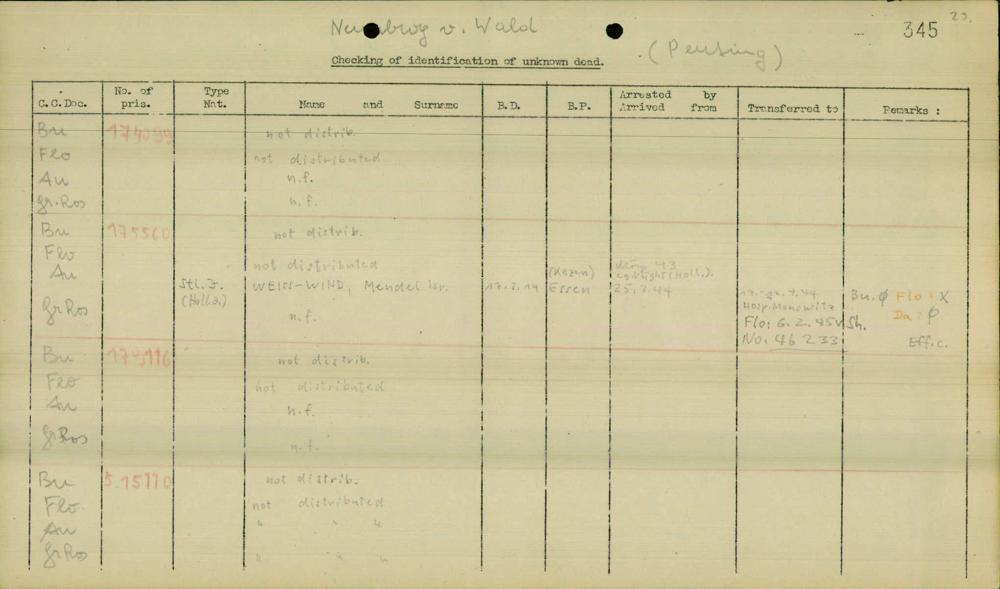 23.
345
v. Wald
(Penting)
Checking of identification of unknown dead.
C.C.Doc. No. of pris. Type Nat. Name and Surname B.D. B.P. Arrested by Arrived from Transferred to Remarks :
Bu 174099 not distrib.
Flo not distributed
Au n.f.
Gr.Ros n.f.
Bu 175560 not distrib.
Flo
Au not distributed
Stl.J. (Holld.) WEISS-WIND, Mendel Isr. 17.2.14 Essen 25.3.44
Hosp. Monowitz
Bu. ø Flo: X
Da: ø
Gr Ros n.f.
Flo: 6.2.45 v. Sh.
No. 46 233 Eff.c.
Bu not distrib.
Flo not distributed
Au n.f.
Gr Ros n.f.
Bu 5.15110 not distrib.
Flo. not distributed
Au " " "
Gr Ros " " "